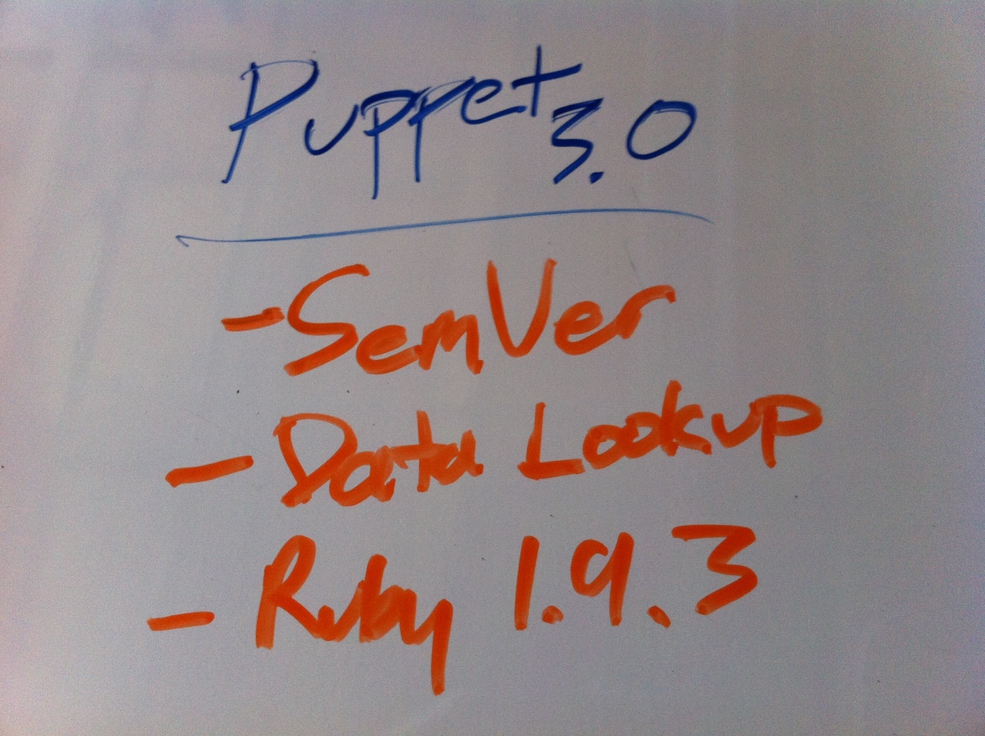 Puppet 3.0
- SemVer
- Data Lookup
- Ruby 1.9.3